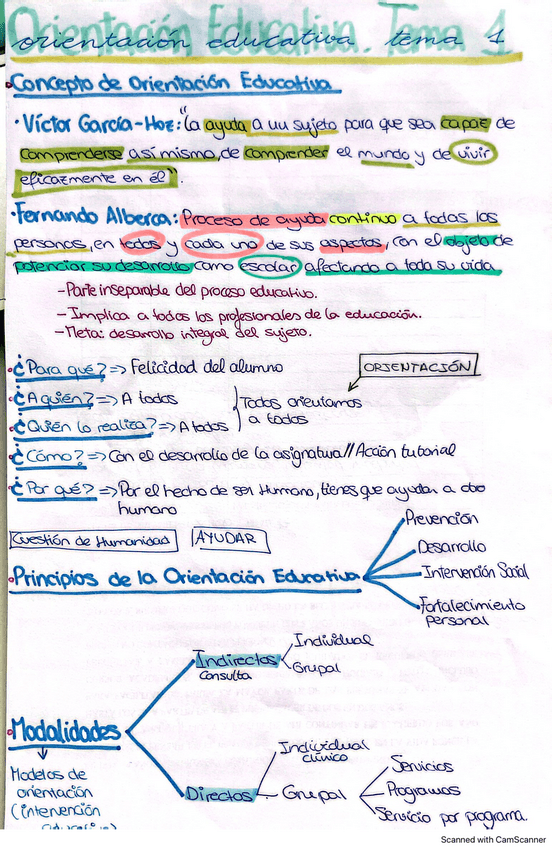 Orientación Educativa. Tema 1
orientación educativa tema 1
Concepto de Orientación Educativa
· Víctor García-Hoz: "La ayuda a un sujeto para que sea capaz de
comprenderse a sí mismo, de comprender el mundo y de vivir
eficazmente en él".
· Fernando Alberca: Proceso de ayuda continuo a todas las
personas, en todos y cada uno de sus aspectos, con el objeto de
potenciar su desarrollo como escolar afectando a toda su vida
- Parte inseparable del proceso educativo.
- Implica a todos los profesionales de la educación.
- Meta: desarrollo integral del sujeto.
· ¿Para qué? => Felicidad del alumno
ORIENTACIÓN
· ¿A quién? => A todos
Todos orientamos
a todos
· ¿Quién lo realiza? => A todos
· ¿Cómo? => Con el desarrollo de la asignatura // Acción tutorial
· ¿Por qué? => Por el hecho de ser Humano, tienes que ayudar a otro
humano
Cuestión de Humanidad
AYUDAR
· Principios de la Orientación Educativa
Prevención
Desarrollo
Intervención Social
Fortalecimiento
personal
· Modalidades
Indirectos
consulta
Individual
Grupal
Modelos de
orientación
(intervención
Directos
Individual
clínico
Grupal
Servicios
Programas
Servicio por programa.
Scanned with CamScanner